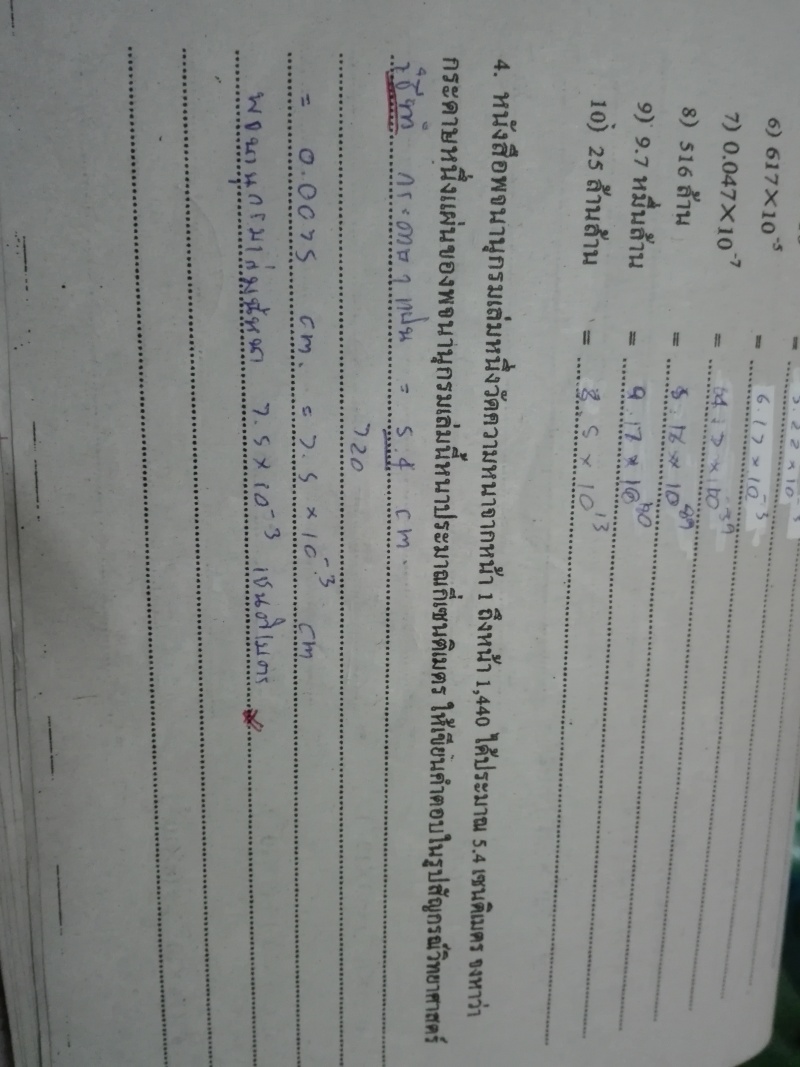 6) 617×10⁻⁵ = 6.17 × 10⁻³
7) 0.047×10⁻⁷ =
8) 516 ล้าน =
9) 9.7 หมื่นล้าน =
10) 25 ล้านล้าน = 2.5 × 10¹³
4. หนังสือพจนานุกรมเล่มหนึ่งวัดความหนาจากหน้า 1 ถึงหน้า 1,440 ได้ประมาณ 5.4 เซนติเมตร จงหาว่า
กระดาษหนึ่งแผ่นของพจนานุกรมเล่มนี้หนาประมาณกี่เซนติเมตร ให้เขียนคำตอบในรูปสัญกรณ์วิทยาศาสตร์
วิธีทำ กระดาษ 1 แผ่น = 5.4 cm.
720
= 0.0075 cm. = 7.5 × 10⁻³ cm
พจนานุกรมเล่มนี้หนา 7.5 × 10⁻³ เซนติเมตร